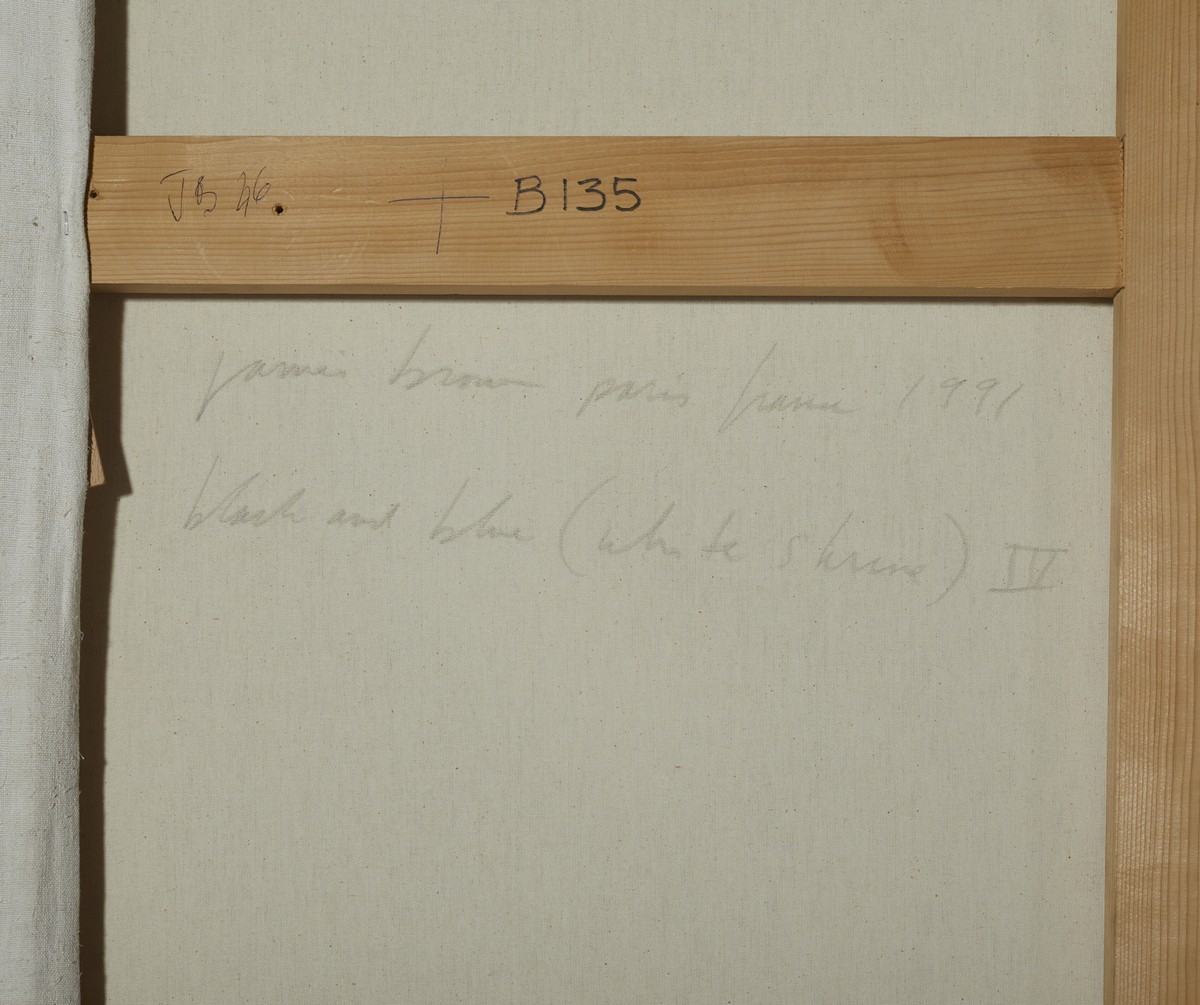 JB 46 B135
james brown paris france 1991
black and blue (white shrine) IV